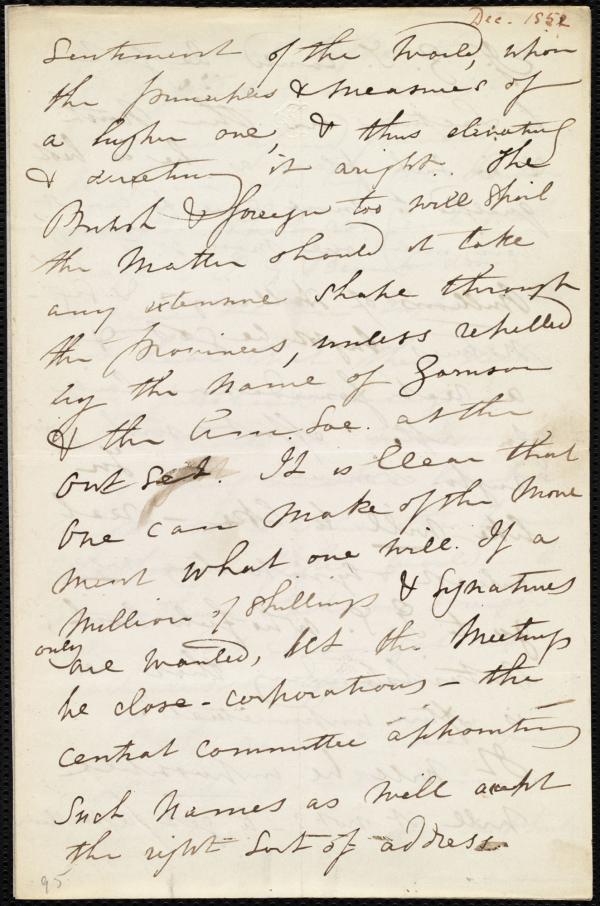 Dec. 1852
Sentiment of the World, upon
the principles & measures of
a higher one, & thus elevating
& directing it aright. The
British & foreign too will spoil
the matter should it take
any extensive shape through
the provinces, unless repelled
by the name of Garrison
& the Am. Soc. at the
out set. It is clear that
one can make of the move
ment what one will. If a
million of shillings & signatures
only
are wanted, let the meetings
be close-corporations - the
central committee appointing
such names as will accept
the right sort of address.
95